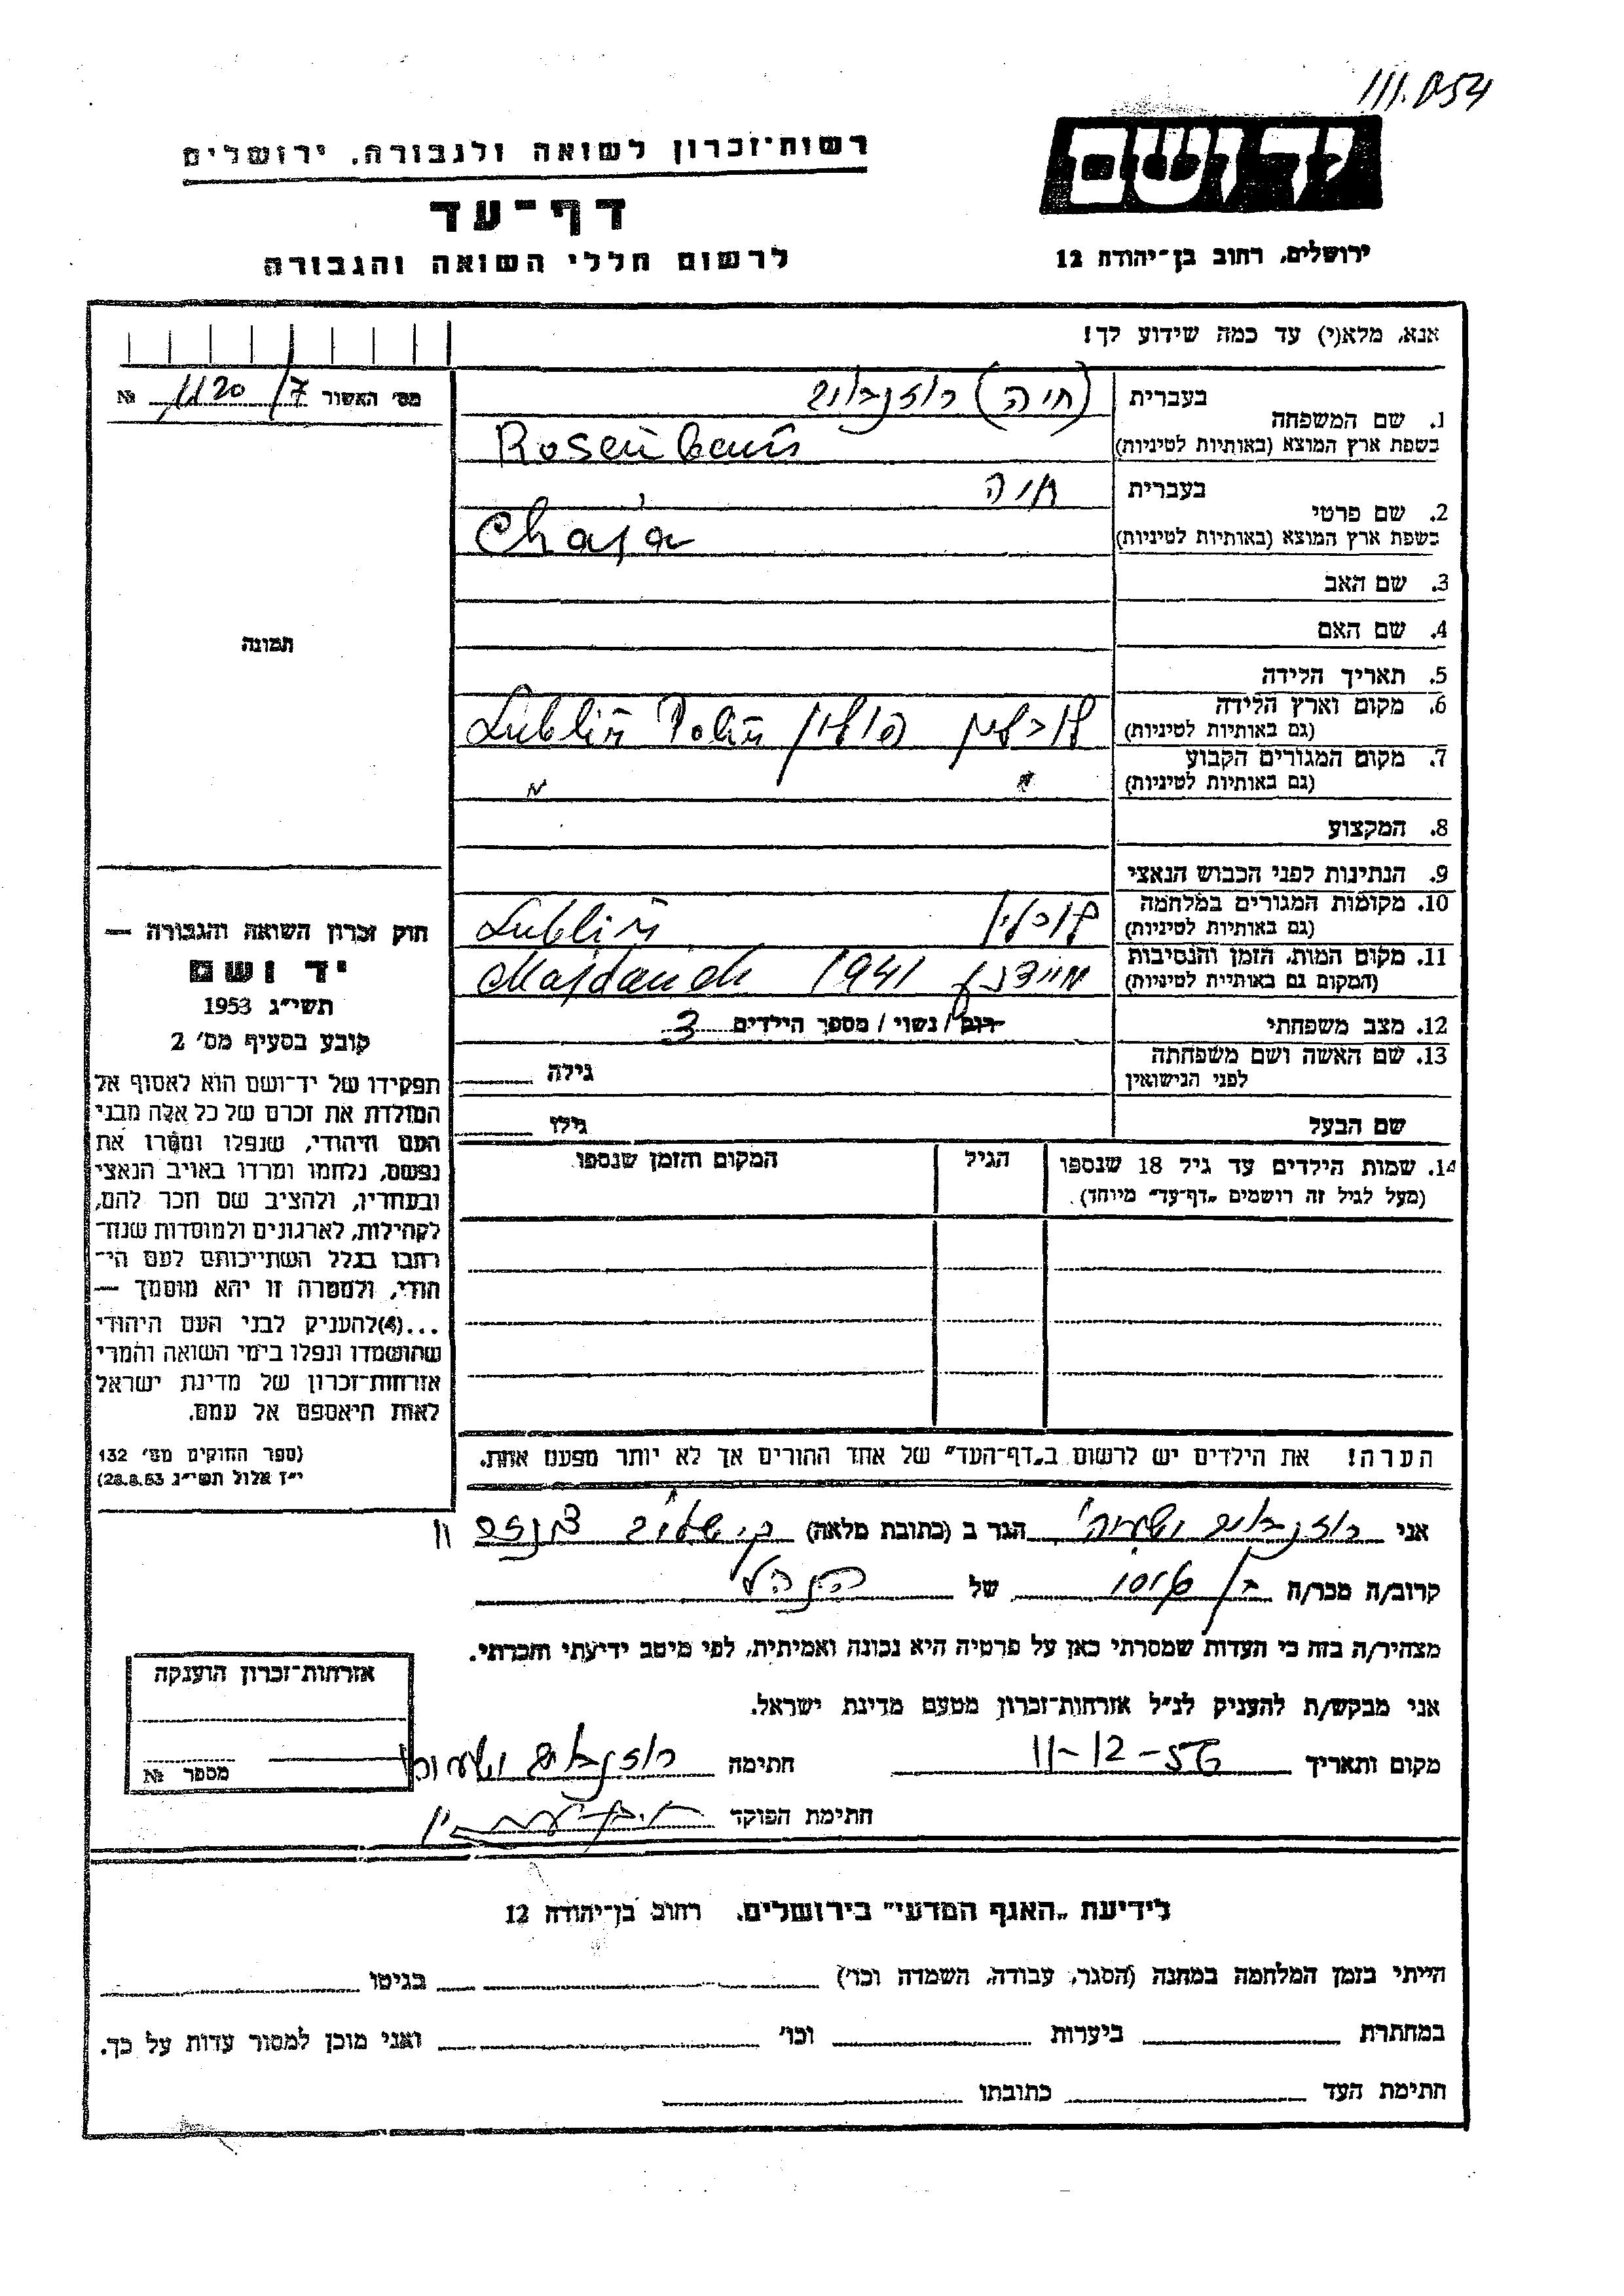 III.054
יד ושם
ירושלים, רחוב בן־יהודה 12
רשות־זכרון לשואה ולגבורה, ירושלים
דף־עד
לרשום חללי השואה והגבורה
אנא, מלא(י) עד כמה שידוע לך!
מס׳ האשור 1120/7 №
תמונה
1. שם המשפחה
בעברית (חיה) רוזנבוים
בשפת ארץ המוצא (באותיות לטיניות) Rosenbaum
2. שם פרטי
בעברית חיה
בשפת ארץ המוצא (באותיות לטיניות) Chaja
3. שם האב
4. שם האם
5. תאריך הלידה
6. מקום וארץ הלידה
(גם באותיות לטיניות) לובלין פולין Lublin Polin
7. מקום המגורים הקבוע
(גם באותיות לטיניות) " "
8. המקצוע
9. הנתינות לפני הכבוש הנאצי
10. מקומות המגורים במלחמה
(גם באותיות לטיניות) לובלין Lublin
11. מקום המות, הזמן והנסיבות
(המקום גם באותיות לטיניות) מיידנק 1941 Majdanek
12. מצב משפחתי רווק / נשוי / מספר הילדים 3
13. שם האשה ושם משפחתה
לפני הנישואין גילה
שם הבעל גילו
14. שמות הילדים עד גיל 18 שנספו
(מעל לגיל זה רושמים „דף־עד" מיוחד).
הגיל
המקום והזמן שנספו
הערה! את הילדים יש לרשום ב„דף־העד" של אחד ההורים אך לא יותר מפעם אחת.
חוק זכרון השואה והגבורה —
יד ושם
תשי״ג 1953
קובע בסעיף מס׳ 2
תפקידו של יד־ושם הוא לאסוף אל
המולדת את זכרם של כל אלה מבני
העם היהודי, שנפלו ומסרו את
נפשם, נלחמו ומרדו באויב הנאצי
ובעוזריו, ולהציב שם וזכר להם,
לקהילות, לארגונים ולמוסדות שנח־
רבו בגלל השתייכותם לעם הי־
הודי, ולמטרה זו יהא מוסמך —
...(4)להעניק לבני העם היהודי
שהושמדו ונפלו בימי השואה והמרי
אזרחות־זכרון של מדינת ישראל
לאות היאספם אל עמם.
(ספר החוקים מס׳ 132
י״ז אלול תשי״ג 28.8.53)
אני רוזנבוים הגר ב (כתובת מלאה) 11
קרוב/ה מכר/ה בן של
מצהיר/ה בזה כי העדות שמסרתי כאן על פרטיה היא נכונה ואמיתית, לפי מיטב ידיעתי והכרתי.
אני מבקש/ת להעניק לנ״ל אזרחות־זכרון מטעם מדינת ישראל.
מקום ותאריך 11-12-56 חתימה רוזנבוים
חתימת הפוקד
אזרחות־זכרון הוענקה
מספר №
לידיעת „האגף המדעי" בירושלים, רחוב בן־יהודה 12
הייתי בזמן המלחמה במחנה (הסגר, עבודה, השמדה וכו׳) בגיטו
במחתרת ביערות וכו׳ ואני מוכן למסור עדות על כך.
חתימת העד כתובתו